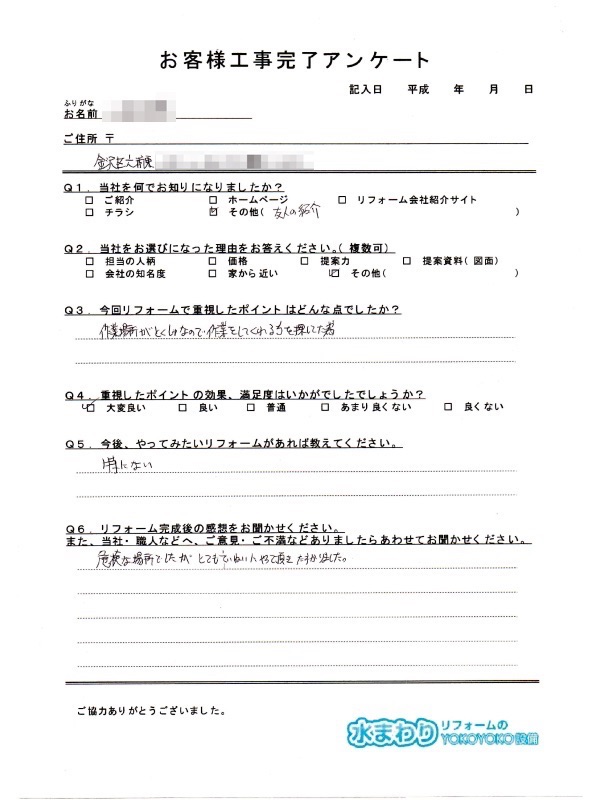 お客様工事完了アンケート
記入日 平成 年 月 日
ふりがな
お名前
ご住所 〒
金沢区六浦東
Q1. 当社を何でお知りになりましたか?
□ ご紹介 □ ホームページ □ リフォーム会社紹介サイト
□ チラシ ☑ その他( 友人の紹介 )
Q2. 当社をお選びになった理由をお答えください。(複数可)
□ 担当の人柄 □ 価格 □ 提案力 □ 提案資料(図面)
□ 会社の知名度 □ 家から近い ☑ その他( )
Q3. 今回リフォームで重視したポイントはどんな点でしたか?
作業場所がとくしゅなので作業をしてくれる方を探してた
Q4. 重視したポイントの効果、満足度はいかがでしたでしょうか?
☑ 大変良い □ 良い □ 普通 □ あまり良くない □ 良くない
Q5. 今後、やってみたいリフォームがあれば教えてください。
特にない
Q6. リフォーム完成後の感想をお聞かせください。
また、当社・職人などへ、ご意見・ご不満などありましたらあわせてお聞かせください。
危険な場所でしたが とてもていねいにやって頂き たすかりました。
ご協力ありがとうございました。
水まわり リフォームの
YOKOYOKO設備